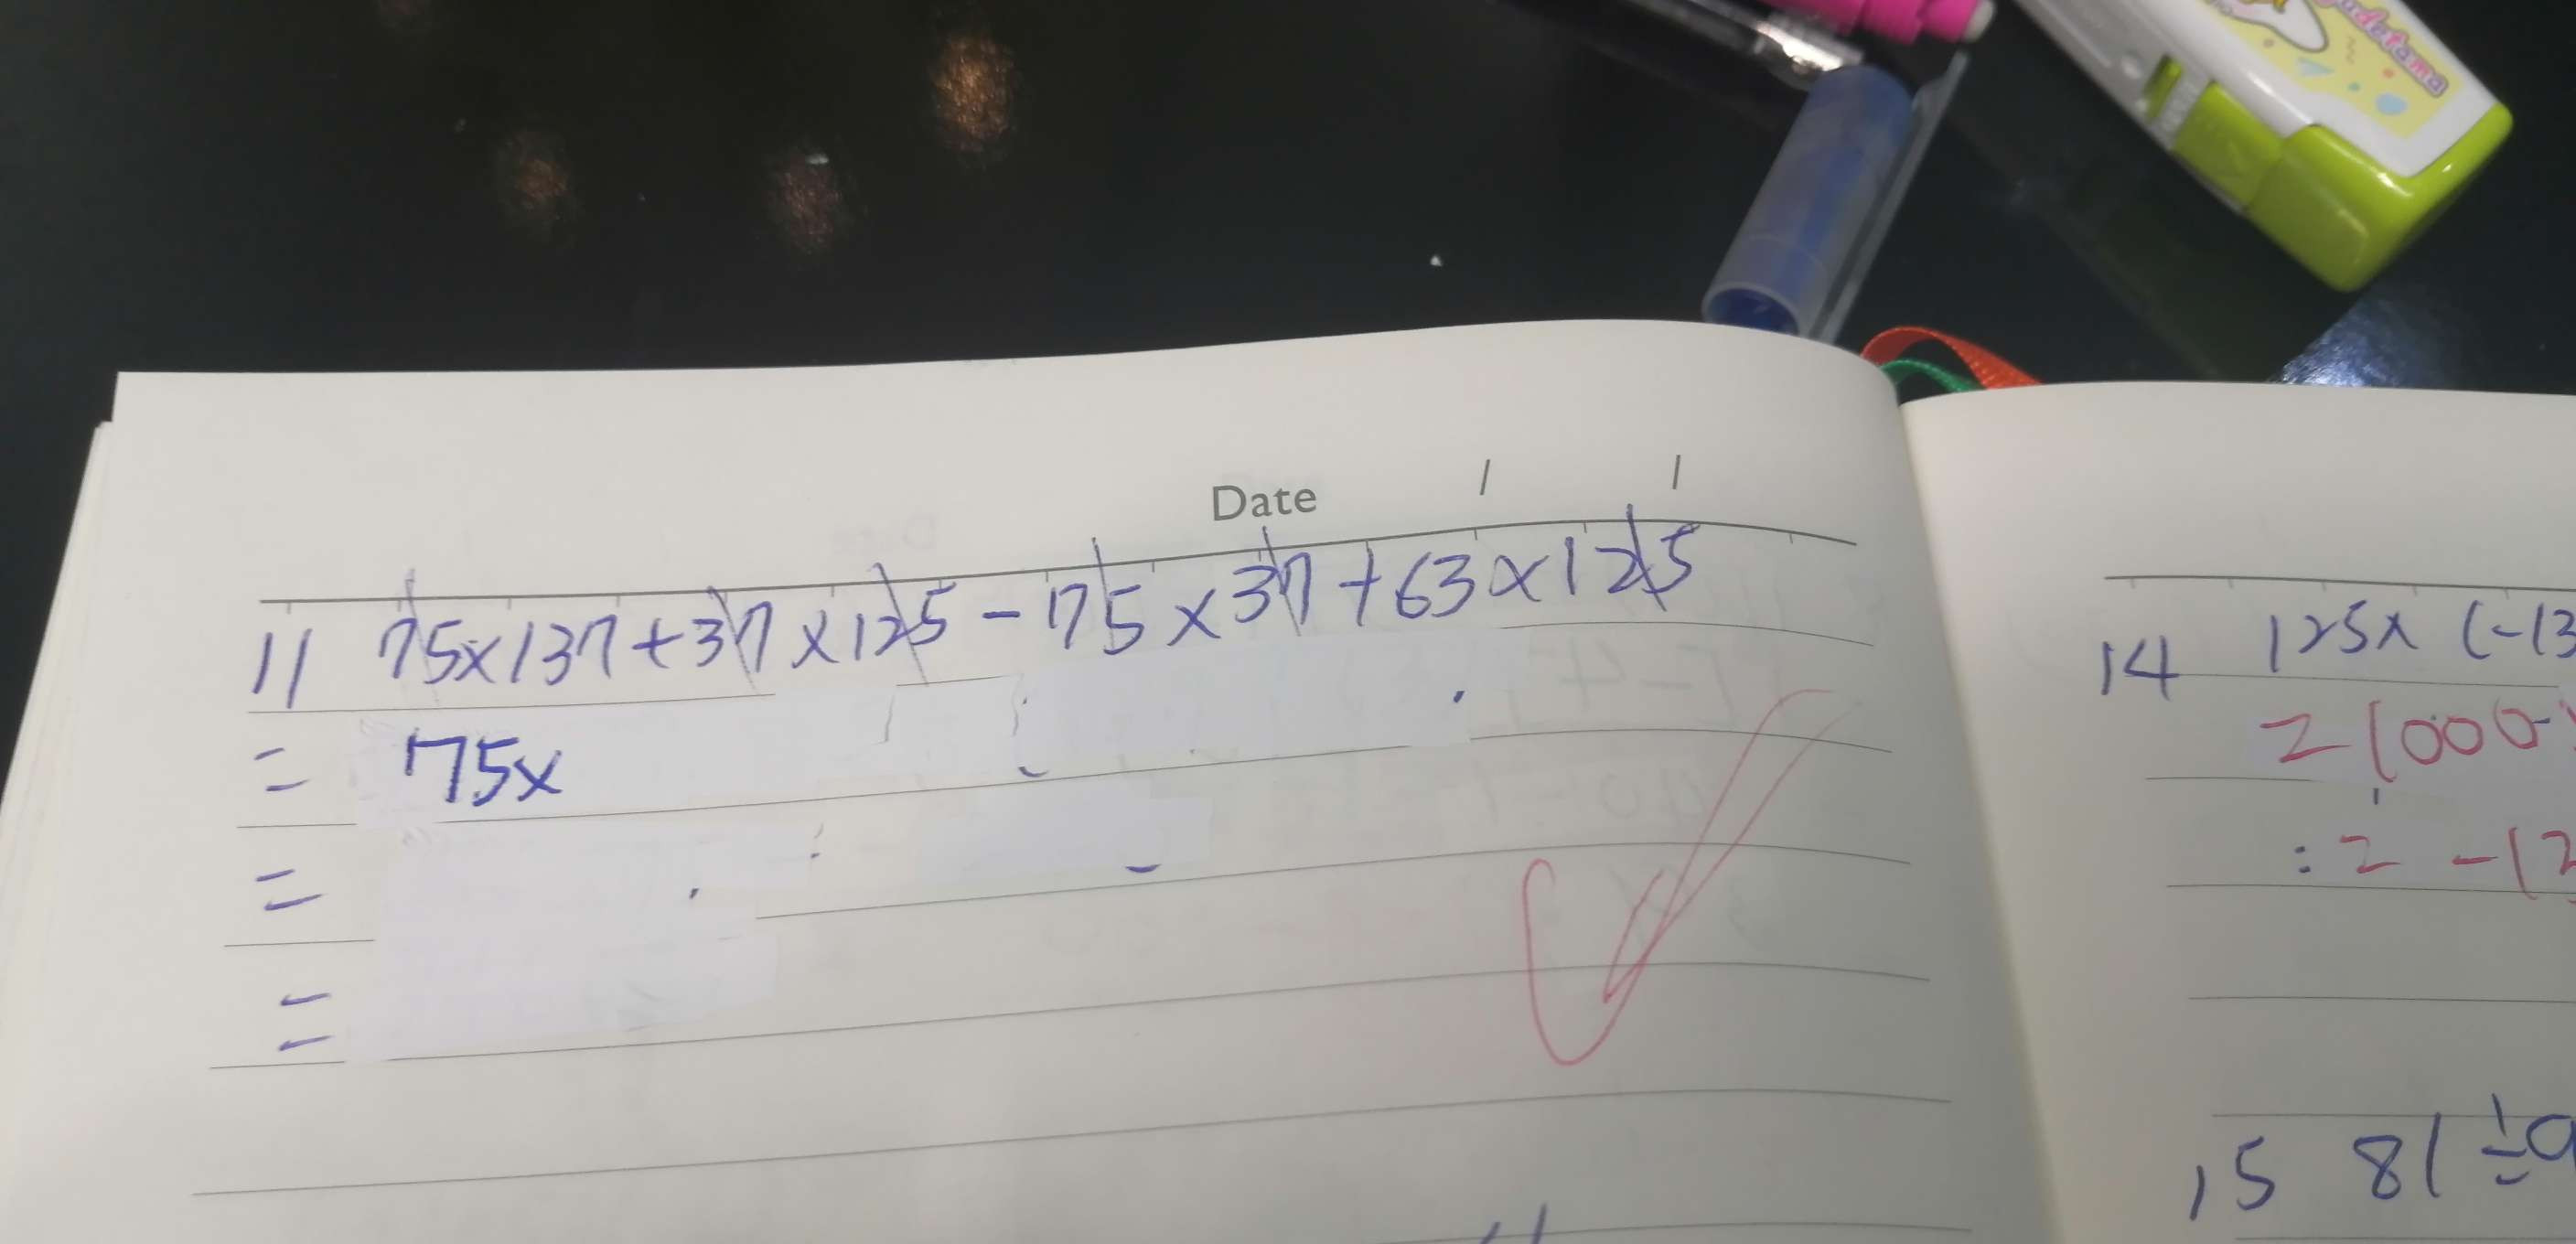 Date / /
11 75×137+37×125-75×37+63×125
= 75×
=
=
14 125× (-13
= 1000-
:= -12
15 81 ÷9
udetama